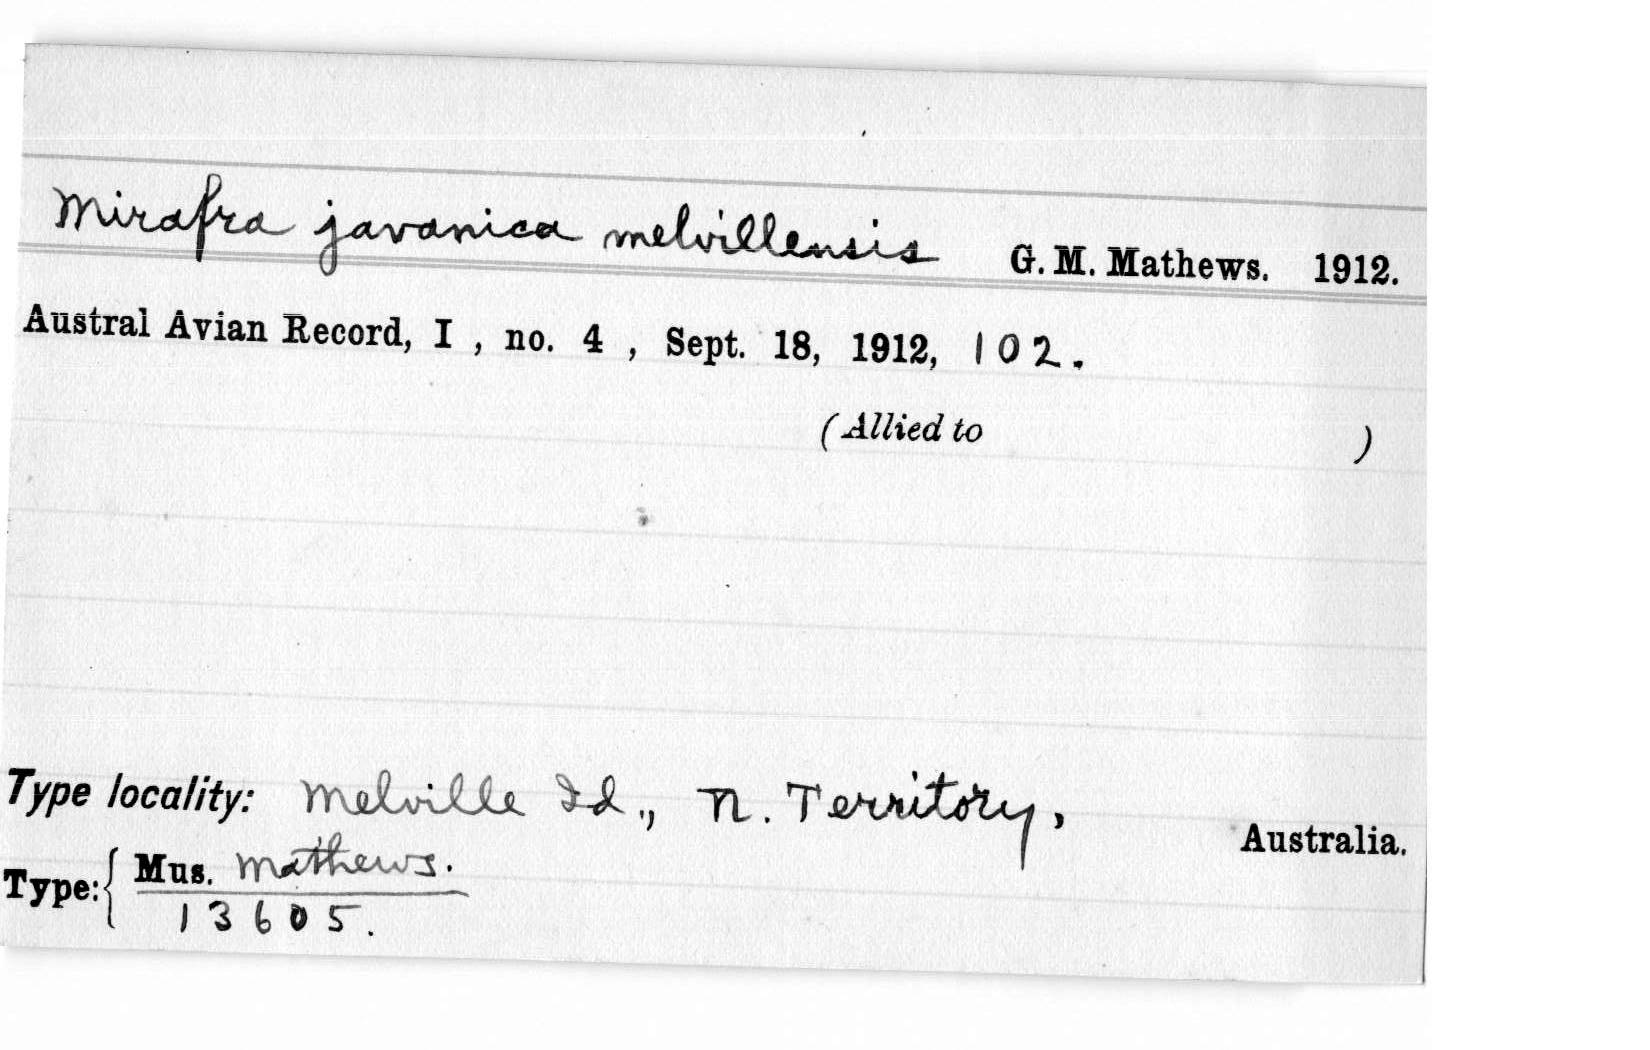 Mirafra javanica melvillensis G. M. Mathews. 1912.
Austral Avian Record, I , no. 4 , Sept. 18, 1912, 102.
(Allied to )
Type locality: Melville Id., N. Territory, Australia.
Type: { Mus. Mathews.
13605.